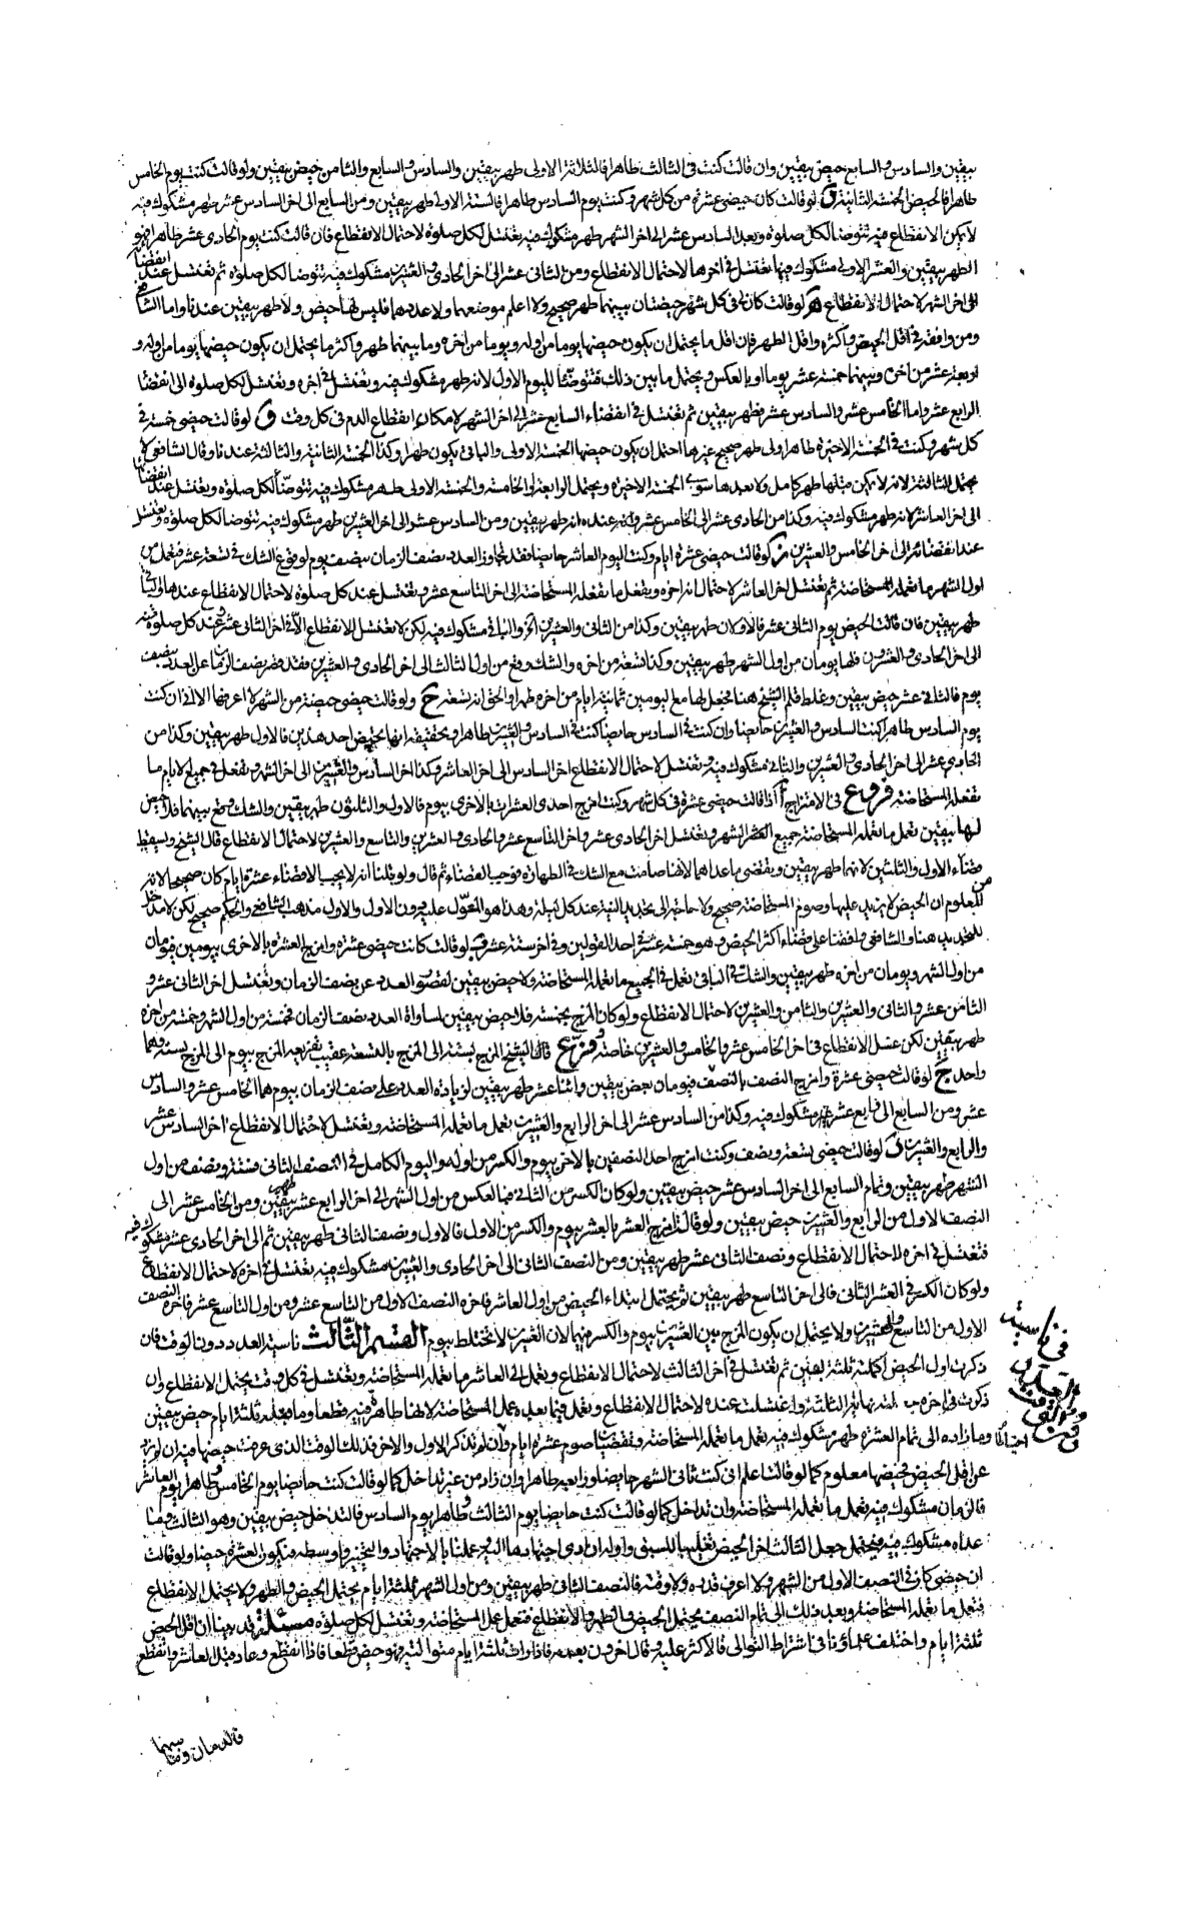 بيقين والسادس والسابع حيض بيقين وان قالت كنت في الثالث طاهرا فالثلثة الاولى طهر بيقين والسادس والسابع والثامن حيض بيقين ولو قالت كنت يوم الخامس
طاهرا فالحيض الخمسة الثانية و لو قالت كان حيضي عشرة من كل شهر وكنت يوم السادس طاهرا فالستة الاولى طهر بيقين ومن السابع الى اخر السادس عشر طهر مشكوك فيه
لا يمكن الانقطاع فيه تتوضأ لكل صلوة وبعد السادس عشر الى اخر الشهر طهر مشكوك فيه تغتسل لكل صلوة لاحتمال الانقطاع فان قالت كنت يوم الحادى عشر طاهرا فهو
الطهر بيقين والعشر الاولى مشكوك فيها تغتسل في اخرها لاحتمال الانقطاع ومن الثانى عشر الى اخر الحادى والعشرين مشكوك فيه تتوضا لكل صلوة ثم تغتسل عند انقضائه
الى اخر الشهر لاحتمال الانقطاع لو قالت كان لى في كل شهر حيضتان بينهما طهر صحيح ولا اعلم موضعهما ولا عددهما فليس لها حيض ولا طهر بيقين عندنا واما الشافعي
ومن وافقه في اقل الحيض واكثره واقل الطهر فان اقل ما يحتمل ان يكون حيضها يوما من اوله ويوما من اخره وما بينهما طهر واكثر ما يحتمل ان يكون حيضها يوما من اوله و
اربعة عشر من اخره وبينهما خمسة عشر يوما او بالعكس ويحتمل ما بين ذلك فتتوضأ لليوم الاول لانه طهر مشكوك فيه وتغتسل في اخره وتغتسل لكل صلوة الى انقضاء
الرابع عشر واما الخامس عشر والسادس عشر فطهر بيقين ثم تغتسل في انقضاء السابع عشر الى اخر الشهر لامكان انقطاع الدم في كل وقت و لو قالت حيضي خمسة في
كل شهر وكنت في الخمسة الاخيرة طاهرا ولى طهر صحيح غيرها احتمل ان يكون حيضها الخمسة الاولى والباقى يكون طهرا وكذا الخمسة الثانية والثالثة عندنا وقال الشافعي لا
يحتمل الثالثة لانه لا يمكن قبلها طهر كامل ولا بعدها سوى الخمسة الاخيرة ويحتمل الرابعة والخامسة والخمسة الاولى طهر مشكوك فيه تتوضأ لكل صلوة وتغتسل عند انقضائه
الى اخر العاشر لانه طهر مشكوك فيه وكذا من الحادى عشر الى الخامس عشر وانه عنده انه طهر بيقين ومن السادس عشر الى اخر العشرين طهر مشكوك فيه تتوضا لكل صلوة وتغتسل
عند انقضائه الى اخر الخامس والعشرين ز لو قالت حيضي عشرة ايام وكنت اليوم العاشر حايضا فقد تجاوز العدد نصف الزمان بنصف يوم لوقوع الشك في تسعة عشر فتعمل من
اول الشهر ما تعمله المستحاضة ثم تغتسل اخر العاشر لاحتمال انه اخره وتفعل ما تفعله المستحاضة الى اخر التاسع عشر وتغتسل عند كل صلوة لاحتمال الانقطاع عندها والباقي
طهر بيقين فان قالت الحيض يوم الثانى عشر فالاولان طهر بيقين وكذا من الثانى والعشرين الى اخره والباقى مشكوك فيه لكن لا تغتسل للانقطاع الا في اخر الثانى عشر وعند كل صلوة فيه
الى اخر الحادى والعشرون فلها يومان من اول الشهر طهر بيقين وكذا تسعة من اخره والشك وقع من اول الثالث الى اخر الحادى والعشرين فقد قصر نصف الزمان عن العدد بنصف
يوم فالثانى عشر حيض بيقين وغلط قلم الشيخ هنا فجعل لها مع اليومين ثمانية ايام من اخره طهرا والحق انه تسعة ح ولو قالت حيضي حيضة من الشهر لا اعرفها الا انى ان كنت
يوم السادس طاهرا كنت السادس والعشرين حايضا وان كنت في السادس حايضا كنت في السادس والعشرين طاهرا وتحقيقه انها تحيض احد هذين فالاول طهر بيقين وكذا من
الحادى عشر الى اخر الحادى والعشرين والثانى مشكوك فيه وتغتسل لاحتمال الانقطاع اخر السادس الى اخر العاشر وكذا اخر السادس والعشرين الى اخر الشهر وتفعل في جميع الايام ما
تفعله المستحاضة فروع في الامتزاج ا اذا قالت حيضي عشرة في كل شهر وكنت امزج احدى العشرات بالاخرى بيوم فالاول والثلثون طهر بيقين والشك وقع بينهما فلا حيض
لها بيقين تعمل ما تعمله المستحاضة جميع الشهر وتغتسل اخر الحادى عشر واخر التاسع عشر والحادى والعشرين والتاسع والعشرين لاحتمال الانقطاع قال الشيخ ويسقط
قضاء الاول والثلثين لانهما طهر بيقين ويقتضى ما عداهما لانها صامت مع الشك في الطهارة فوجب القضاء ثم قال ولو قلنا انه لا يجب الا قضاء عشرة ايام كان صحيحا لانه
من المعلوم ان الحيض لا يزيد عليها وصوم المستحاضة صحيح ولا حاجة الى تجديد النية عند كل ليلة وهذا هو المعول عليه دون الاول والاول مذهب الشافعي والحكم صحيح لكن لا مدخل
للتجديد هنا والشافعي وافقنا على قضاء اكثر الحيض وهو خمسة عشر في احد القولين وفي اخر ستة عشر ب لو قالت كانت حيضي عشرة وامزج العشرة بالاخرى بيومين فيومان
من اول الشهر ويومان من اخره طهر بيقين والشك في الباقي تعمل في الجميع ما تعمله المستحاضة ولا حيض بيقين لقصور العدد عن نصف الزمان وتغتسل اخر الثانى عشر و
الثامن عشر والثانى والعشرين والثامن والعشرين لاحتمال الانقطاع ولو كان المزج بخمسة فلا حيض بيقين لمساواة العدد نصف الزمان فخمسة من اول الشهر وخمسة من اخره
طهر بيقين لكن غسل الانقطاع في اخر الخامس عشر والخامس والعشرين خاصة فروع قال الشيخ المزج بستة الى المزج بالتسعة عقيب تفريعه المزج بيوم الى المزج بستة وهما
واحد ج لو قالت حيضي عشرة وامزج النصف بالنصف فيومان حيض بيقين واثنا عشر طهر بيقين لزيادة العدد على نصف الزمان بيوم هما الخامس عشر والسادس
عشر ومن السابع الى الرابع عشر مشكوك فيه وكذا من السادس عشر الى اخر الرابع والعشرين تعمل ما تعمله المستحاضة وتغتسل لاحتمال الانقطاع اخر السادس عشر
والرابع والعشرين د لو قالت حيضي تسعة ونصف وكنت امزج احد النصفين بالاخر بيوم والكسر من اوله واليوم الكامل في النصف الثانى فستة ونصف من اول
الشهر طهر بيقين وتمام السابع الى اخر السادس عشر حيض بيقين ولو كان الكسر من الثانى فبالعكس من اول الشهر الى اخر الرابع عشر طهر بيقين ومن الخامس عشر الى
النصف الاول من الرابع والعشرين حيض بيقين ولو قالت امزج العشر بالعشر بيوم والكسر من الاول فالاول ونصف الثانى طهر بيقين ثم الى اخر الحادى عشر مشكوك فيه
فتغتسل في اخره لاحتمال الانقطاع ونصف الثانى عشر طهر بيقين ومن النصف الثانى الى اخر الحادى والعشرين مشكوك فيه تغتسل في اخره لاحتمال الانقطاع
ولو كان الكسر في العشر الثانى فالى اخر التاسع طهر بيقين ثم يحتمل ابتداء الحيض من اول العاشر فاخره النصف الاول من التاسع عشر ومن اول التاسع عشر فاخره النصف
الاول من التاسع والعشرين ولا يحتمل ان يكون المزج بين العشرين بيوم والكسر فيهما لان العشرين لا تختلط بيوم القسم الثالث ناسية العدد دون الوقت فان
ذكرت اول الحيض اكملته ثلثة بيقين ثم تغتسل في اخر الثالث لاحتمال الانقطاع وتعمل الى العاشر ما تعمله المستحاضة وتغتسل في كل وقت يحتمل الانقطاع وان
ذكرت في اخره جعلته نهاية الثلثة واغتسلت عنده لاحتمال الانقطاع وتعمل فيما بعده عمل المستحاضة لانها طاهرة فيه قطعا وما قبله ثلثة ايام حيض بيقين
وما زاد الى تمام العشرة طهر مشكوك فيه تعمل ما تعمله المستحاضة وتقضى صوم عشرة ايام وان لم تذكر الاول والاخر فذلك الوقت الذى عرفت حيضها فيه ان لم يزد
عن اقل الحيض فحيضها معلوم كما لو قالت اعلم انى كنت ثانى الشهر حايضا ورابعه طاهرا وان زاد من غير تداخل كما لو قالت كنت حايضا يوم الخامس وطاهرا يوم العاشر
فالزمان مشكوك فيه تعمل ما تعمله المستحاضة وان تداخل كما لو قالت كنت حايضا يوم الثالث وطاهرا يوم السادس فالتداخل حيض بيقين وهو الثالث فما
عداه مشكوك فيه فيحتمل جعل الثالث اخر الحيض تغليبا للسبق واوله ان ادى اجتهادها اليه عملنا بالاجتهاد والتخيير واوسطه فيكون العشرة حيضا ولو قالت
ان حيضي كان في النصف الاول من الشهر ولا اعرف قدره ولا وقته فالنصف الثانى طهر بيقين ومن اول الشهر ثلثة ايام يحتمل الحيض والطهر ولا يحتمل الانقطاع
فتعمل ما تعمله المستحاضة وبعد ذلك الى تمام النصف يحتمل الحيض والطهر والانقطاع فتعمل عمل المستحاضة وتغتسل لكل صلوة مسئلة قد بينا ان اقل الحيض
ثلثة ايام واختلف علماؤنا في اشتراط التوالى فالاكثر عليه وقال اخرون بعدمه فاذا رات ثلثة ايام متوالية فهو حيض قطعا فاذا انقطع وعاد قبل العاشر وانقطع
في ناسية
العدد
فالدمان وما بينهما